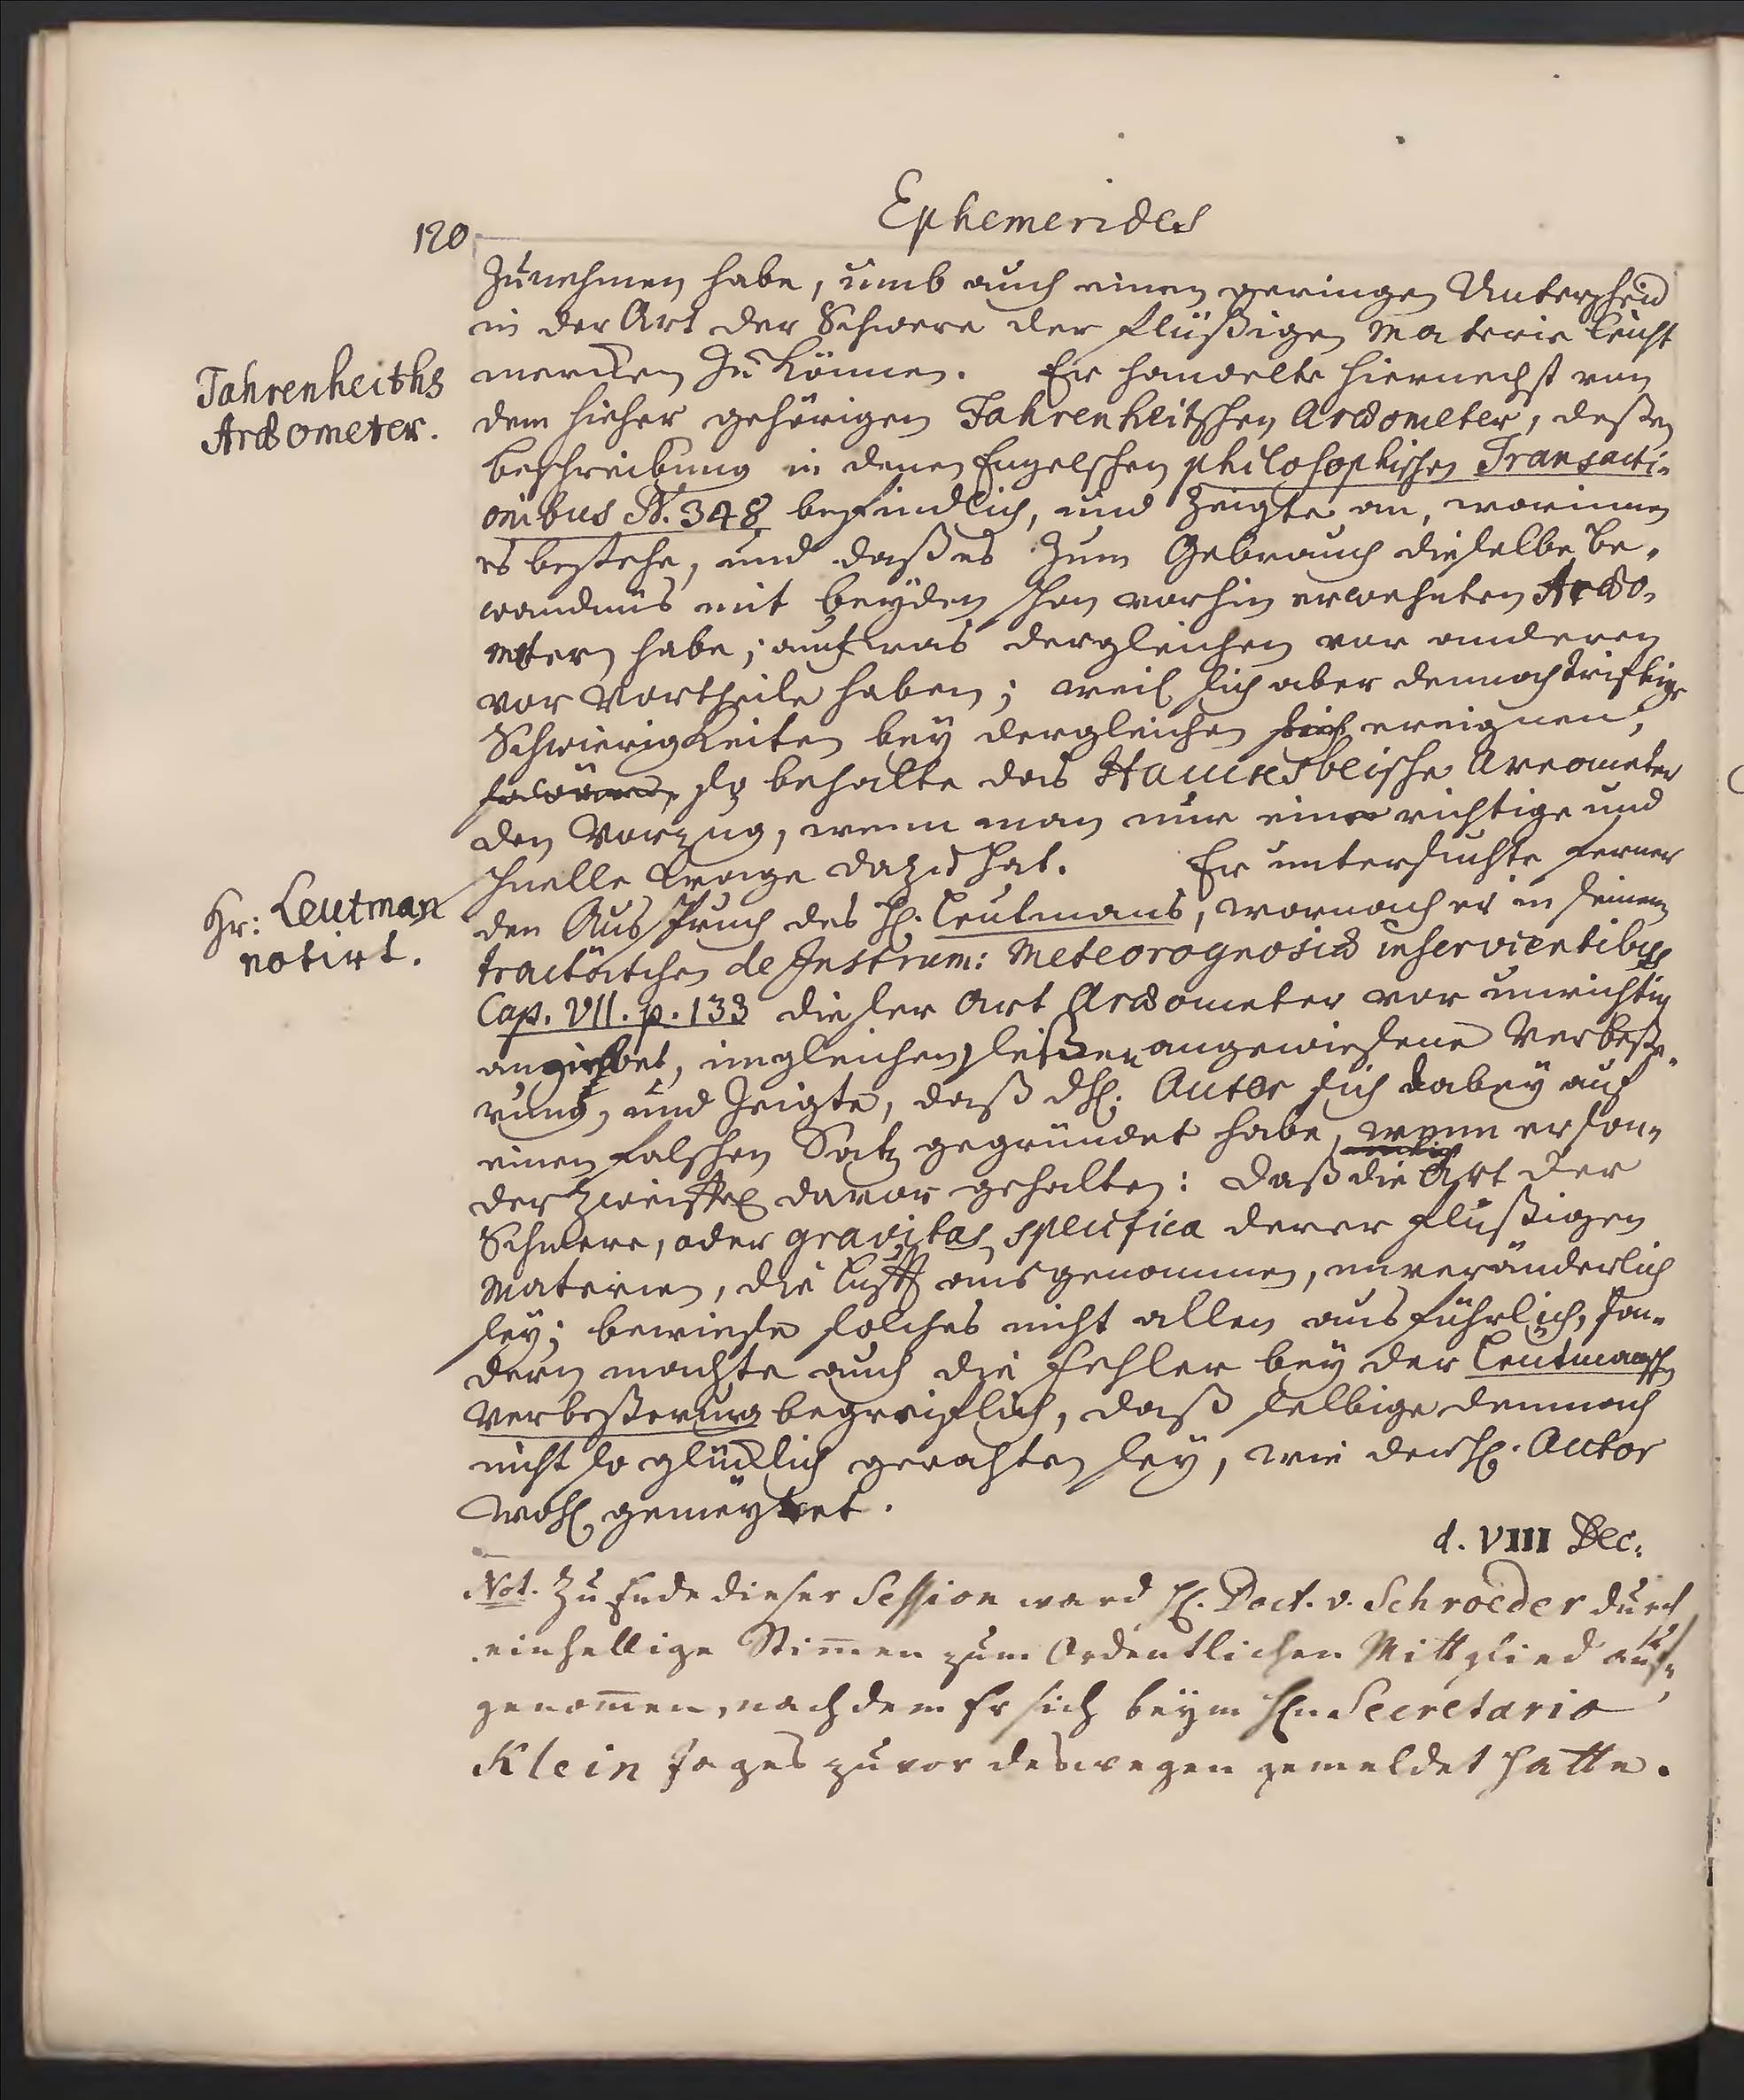 Ephemerides
120
zunehmen habe, umb auch einen geringen Unterscheid
in der Art der Schwere der flüßigen Materie leicht
mercken zu können. Er handelte hiernechst von
Fahrenheiths
Aræometer.
dem hieher gehörigen Fahrenheitschen Aræometer, deßen
beschreibung in denen Engelschen philosophischen Transacti-
onibus N. 348 befindlich, und zeigte an, worinnen
es bestehe, und daß es zum Gebrauch dieselbe be-
wandnüs mit beyden schon vorhin erwehnten Aræo-
metern habe; auch was dergleichen vor anderen
vor Vortheile haben; weil sich aber dennoch trifftige
Schwierigkeiten bey dergleichen sich ereignen,
so behalte das Hauksbeische Areometer
den Vorzug, wenn man nur eine richtige und
schnelle Wage dazu hat. Er untersuchte ferner
Hr: Leutman
notirt.
den Ausspruch des H. Leutmans, wornach er in seinem
tractätchen de Instrum: Meteorognosiæ inservientibus
Cap. VII. p. 133 dieser Art Aræometer vor unrichtig
angiebet, imgleichen seine angewiesene Verbeße-
rung, und zeigte, daß dH. Autor sich dabey auf
einen falschen Satz gegründet habe, wenn er son-
der Zweiffel davor gehalten: daß die Art der
Schwere, oder gravitas specifica derer flüßigen
Materien, die Lufft ausgenommen, unveränderlich
sey; bewiese solches nicht allein ausführlich, son-
dern machte auch die Fehler bey der Leutmansch
Verbeßerung begreiflich, daß selbige demnach
nicht so glücklich gerathen sey, wie der H. Autor
wohl gemeynet.
d. VIII Dec.
Not. Zu Ende dieser Session ward H. Doct. v. Schroeder durch
einhellige Stim̄en zum Ordentlichen Mittglied auf-
genom̄en, nachdem Er sich beym Hn. Secretario
Klein tages zuvor deswegen gemeldet hatte.